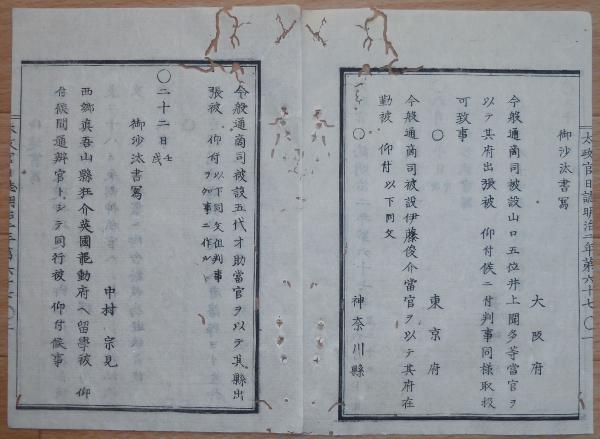 太政官日誌明治二年第六十七〇一
御沙汰書写
大阪府
今般通商司被設山口五位井上聞多等当官ヲ
以テ其府出張被 仰付候ニ付判事同様取扱
可致事
〇 東京府
今般通商司被設伊藤俊介当官ヲ以テ其府在
勤被 仰付以下同文
〇 神奈川縣
今般通商司被設五代才助當官ヲ以テ其縣出
張被 仰付以下同文但判事
ヲ知事ニ作ル
〇二十二日
御沙汰書写
中村 宗見
西郷真吾山縣狂介英國龍動府ヘ留學被 仰
付候間通辨官トシテ同行被 仰付候事